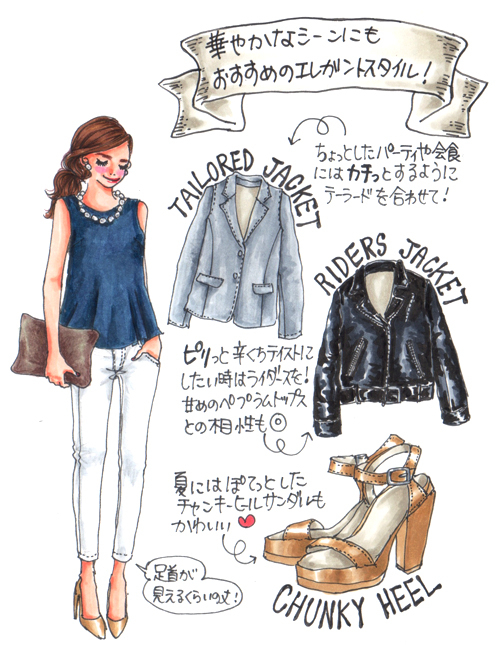 華やかなシーンにも
おすすめのエレガントスタイル!
ちょっとしたパーティや会食
にはカチッとするように
テーラードを合わせて!
TAILORED JACKET
RIDERS JACKET
ピリッと辛くちテイストに
したい時はライダースを!
甘めのペプラムトップス
との相性も◎
夏にはぽてっとした
チャンキーヒールサンダルも
かわいい♥
足首が
見えるくらいの丈!
CHUNKY HEEL